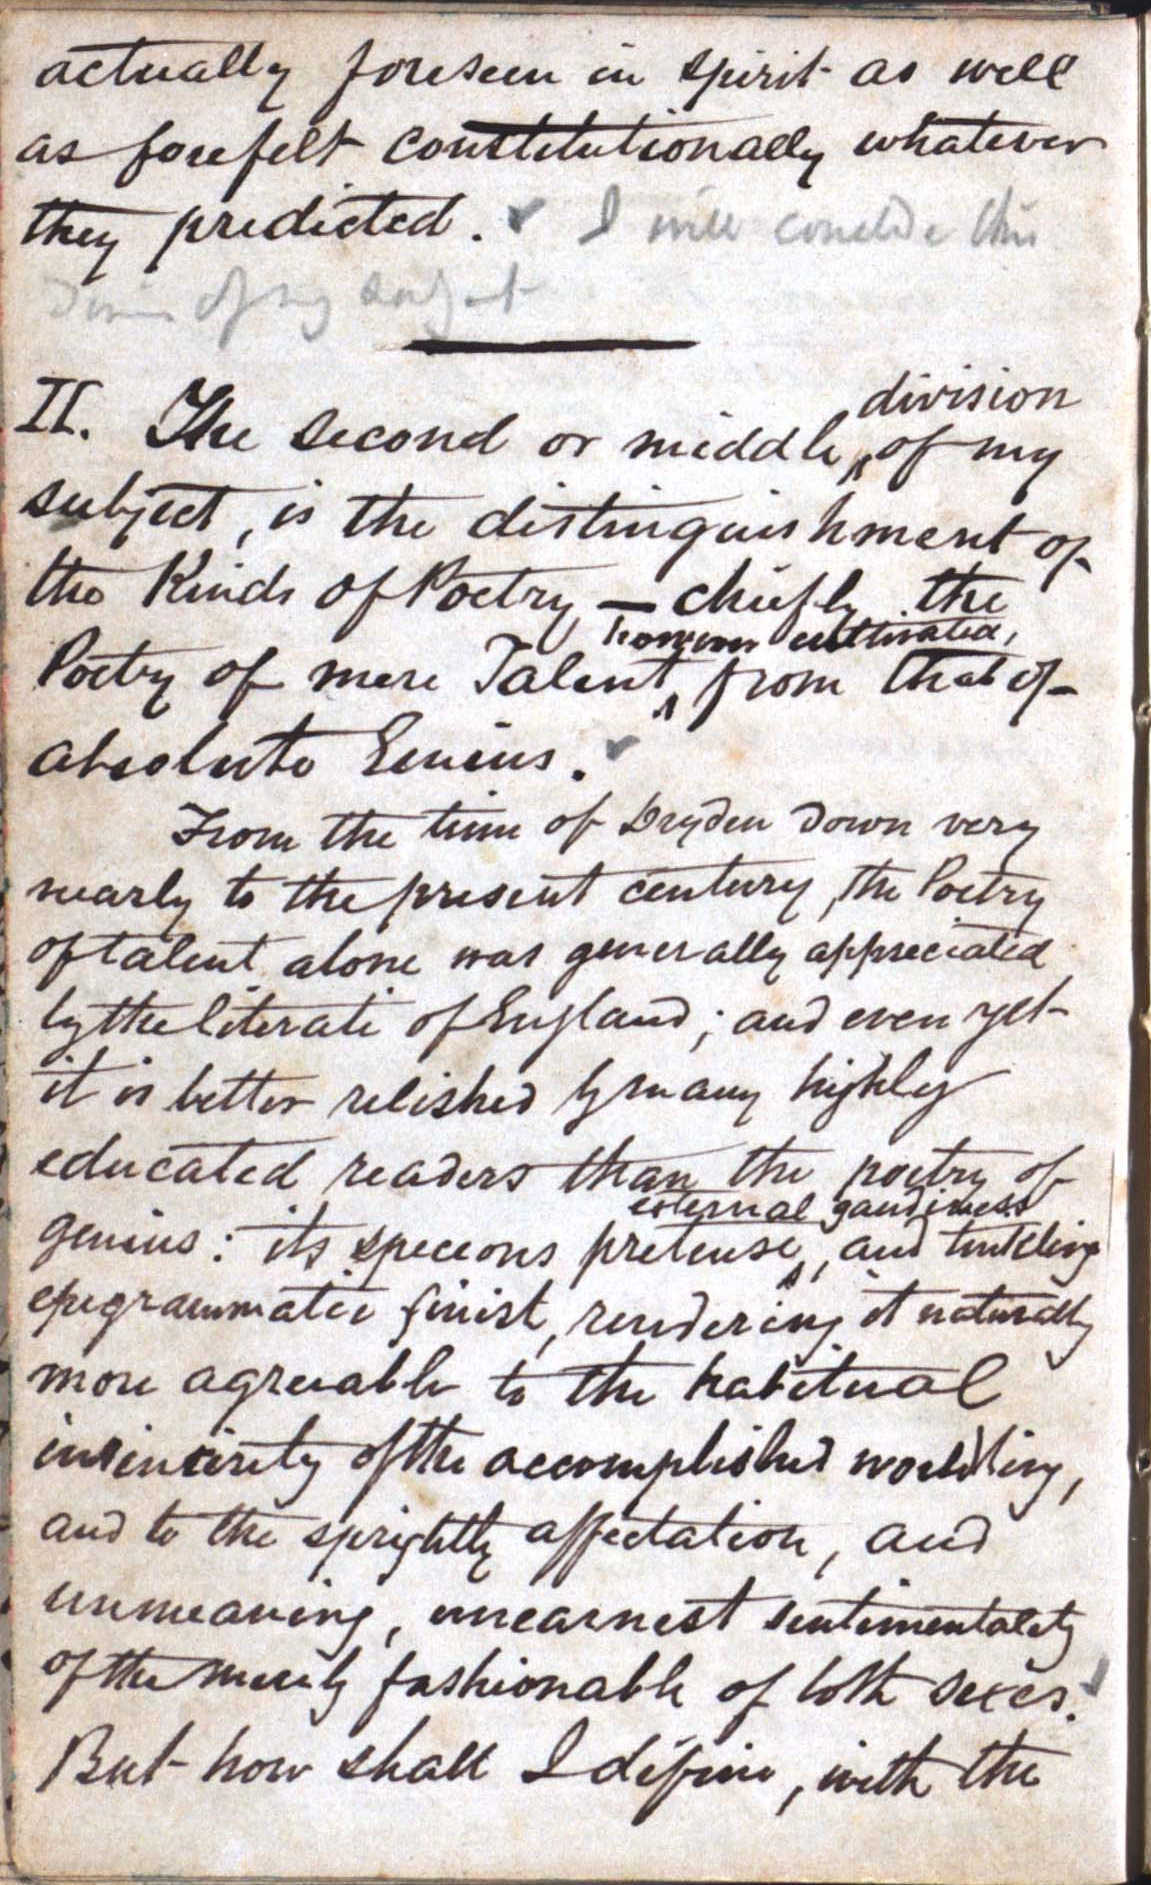 actually foreseen in spirit as well
as forefelt constitutionally whatever
they predicted. I will conclude this
of my subject
division
II. The second or middle of my
subject, is the distinguishment of
the Kinds of Poetry — chiefly the
however cultivated,
Poetry of mere Talent, from that of
absolute Genius.
From the time of Dryden down very
nearly to the present century, the Poetry
of talent alone was generally appreciated
by the literati of England; and even yet
it is better relished by many highly
educated readers than the poetry of
external gaudiness
genius: its specious pretense, and tinkling
epigrammatic finist, rendering it naturally
more agreeable to the habitual
insincerity of the accomplished worldling,
and to the sprightly affectation, and
unmeaning, unearnest sentimentality
of the merely fashionable of both sexes.
But how shall I define, with the